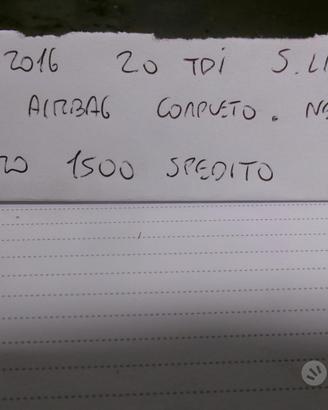 2016 20 TDI S.LI
AIRBAG COMPLETO. NE
RO 1500 SPEDITO